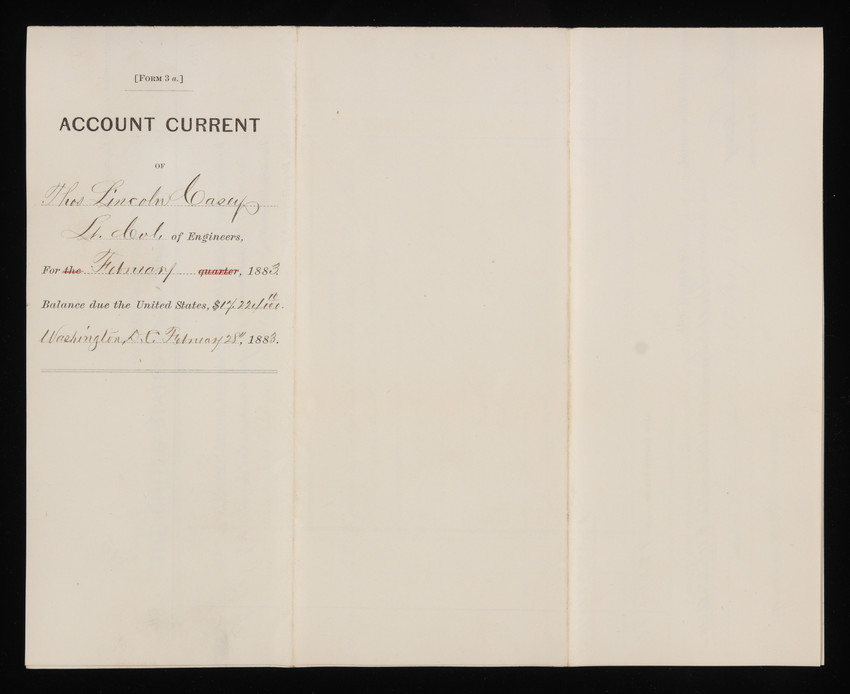 [FORM 3 a.]
ACCOUNT CURRENT
OF
Thos Lincoln Casey
Lt. Col. of Engineers,
For the February quarter, 1883
Balance due the United States,
Washington, D.C. February 28th, 1883.